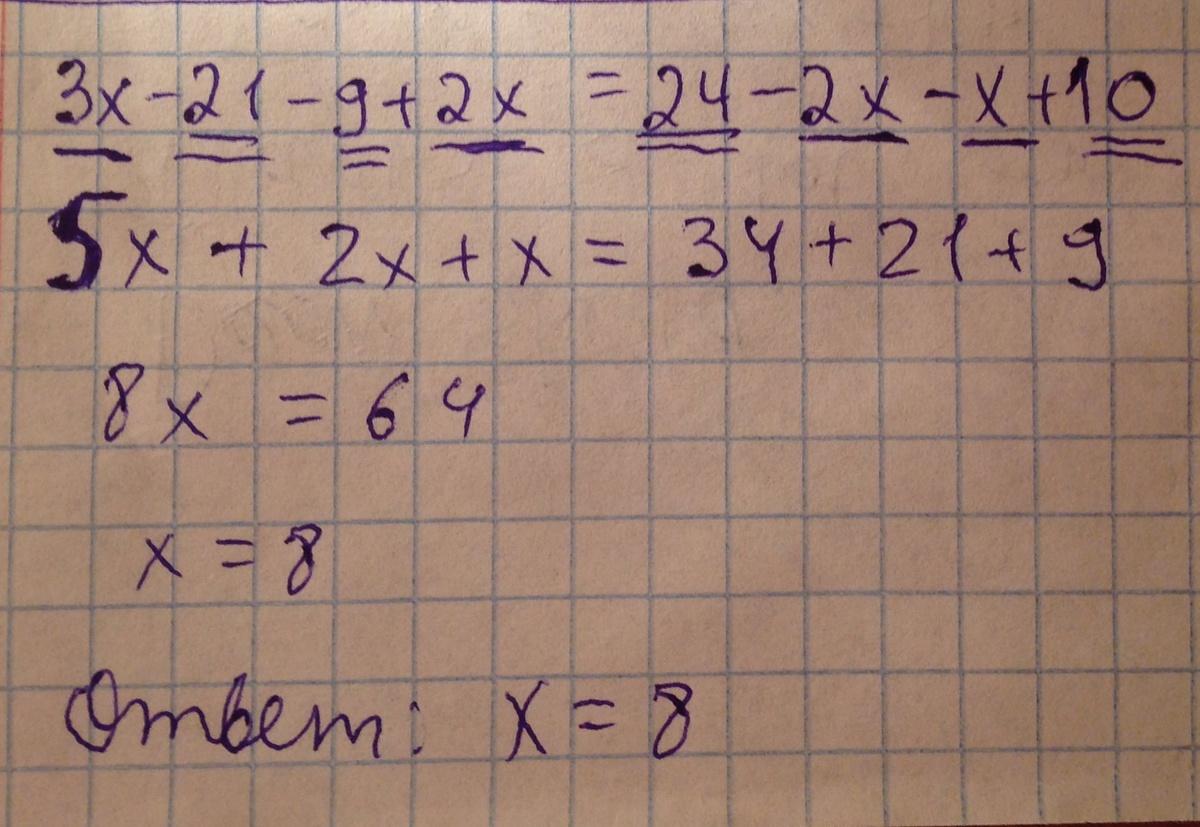 3x - 21 - 9 + 2x = 24 - 2x - x + 10
5x + 2x + x = 34 + 21 + 9
8x = 64
x = 8
Ответ: x = 8